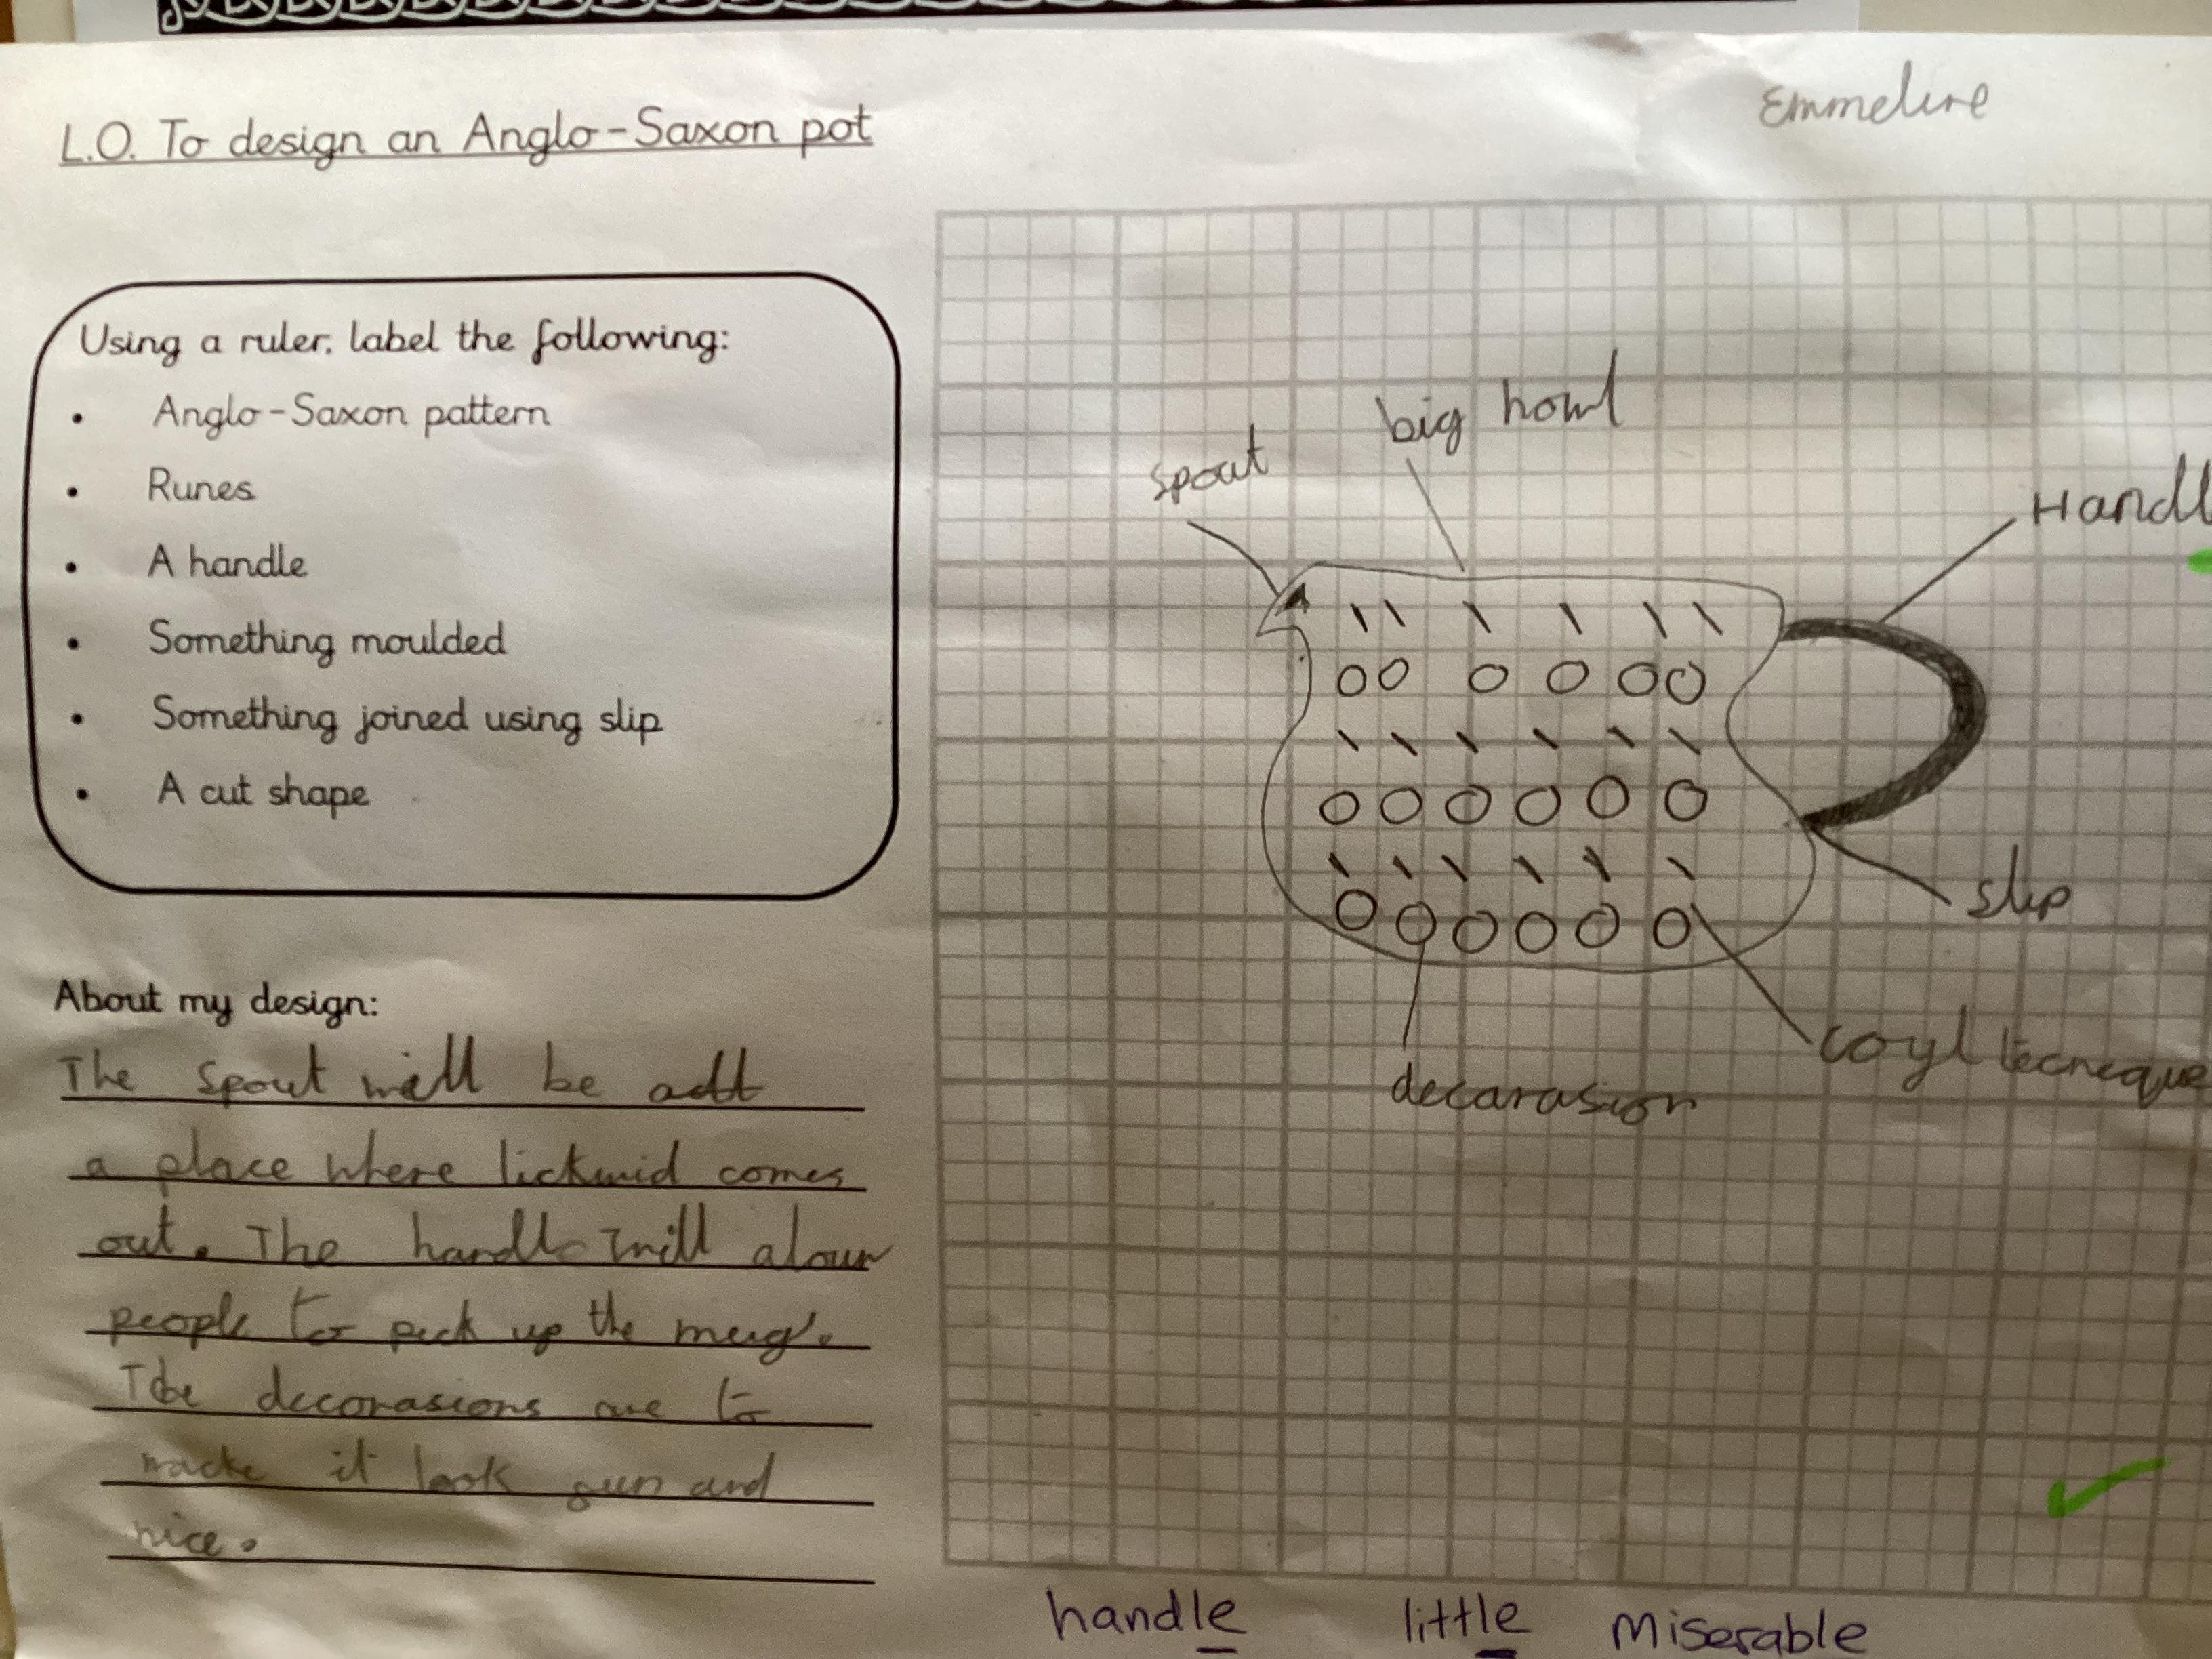 L.O. To design an Anglo-Saxon pot
Emmeline
Using a ruler, label the following:
• Anglo-Saxon pattern
• Runes
• A handle
• Something moulded
• Something joined using slip
• A cut shape
About my design:
The spout will be
a place where lickwid comes
out. The handle will alow
people to pick up the mug.
The decorasions are to
macke it look and
nice.
big howl
spout
Handl
slip
coyl tecneque
decarasion
handle little Miserable